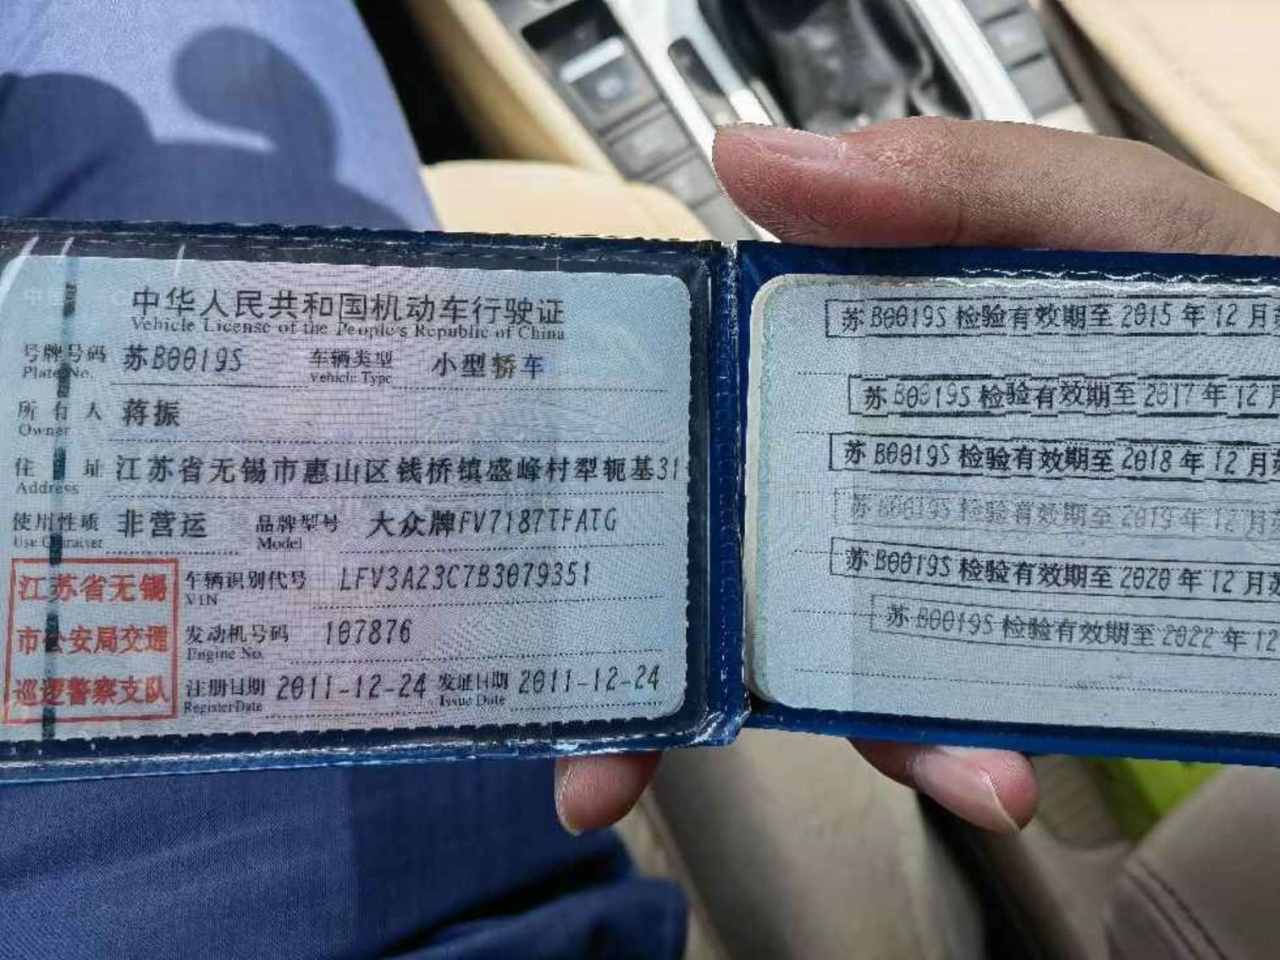 中华人民共和国机动车行驶证
Vehicle License of the People's Republic of China
号牌号码 苏B0019S 车辆类型 小型轿车
Plate No. Vehicle Type
所有人 蒋振
Owner
住址 江苏省无锡市惠山区钱桥镇盛峰村犁轭基31
Address
使用性质 非营运 品牌型号 大众牌FV7187TFATG
Use Character Model
江苏省无锡
市公安局交通
巡逻警察支队
车辆识别代号 LFV3A23C7B3079351
VIN
发动机号码 107876
Engine No.
注册日期 2011-12-24 发证日期 2011-12-24
Register Date Issue Date
苏B0019S 检验有效期至 2015 年 12 月
苏B0019S 检验有效期至 2017 年 12 月
苏B0019S 检验有效期至 2018 年 12 月苏
苏B0019S 检验有效期至 2019 年 12 月
苏B0019S 检验有效期至 2020 年 12 月苏
苏B0019S 检验有效期至 2022 年 12